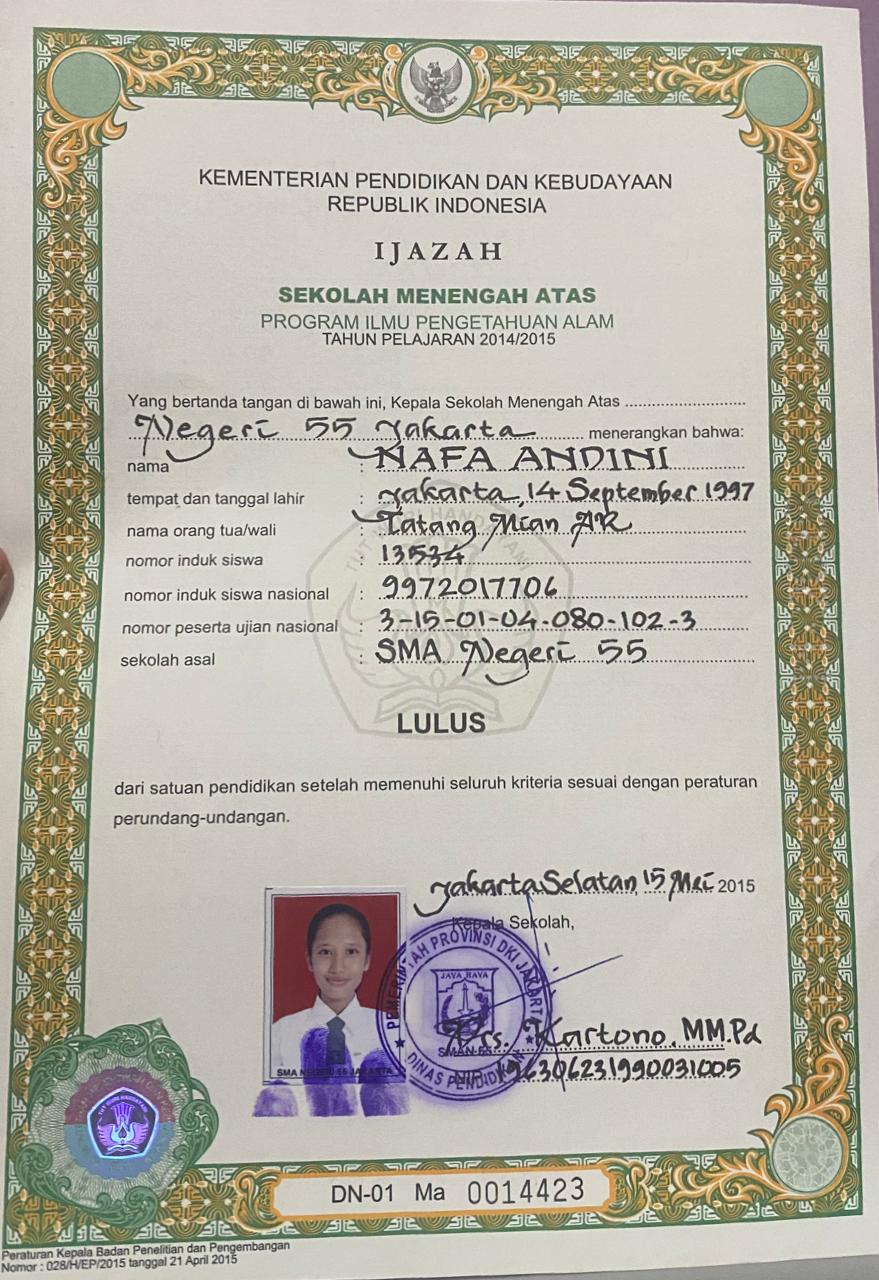 KEMENTERIAN PENDIDIKAN DAN KEBUDAYAAN
REPUBLIK INDONESIA
IJAZAH
SEKOLAH MENENGAH ATAS
PROGRAM ILMU PENGETAHUAN ALAM
TAHUN PELAJARAN 2014/2015
Yang bertanda tangan di bawah ini, Kepala Sekolah Menengah Atas
Negeri 55 Jakarta menerangkan bahwa:
nama : NAFA ANDINI
tempat dan tanggal lahir : Jakarta, 14 September 1997
nama orang tua/wali : Tatang Mian AR
nomor induk siswa : 13534
nomor induk siswa nasional : 9972017706
nomor peserta ujian nasional : 3-15-01-04-080-102-3
sekolah asal : SMA Negeri 55
TUT WURI HANDAYANI
LULUS
dari satuan pendidikan setelah memenuhi seluruh kriteria sesuai dengan peraturan
perundang-undangan.
Jakarta Selatan, 15 Mei 2015
Kepala Sekolah,
PEMERINTAH PROVINSI DKI JAKARTA
JAYA RAYA
SMAN 55
DINAS PENDIDIKAN
Drs. Kartono, MM.Pd
NIP 196306231990031005
SMA NEGERI 55 JAKARTA
TUT WURI HANDAYANI
DN-01 Ma 0014423
Peraturan Kepala Badan Penelitian dan Pengembangan
Nomor : 028/H/EP/2015 tanggal 21 April 2015